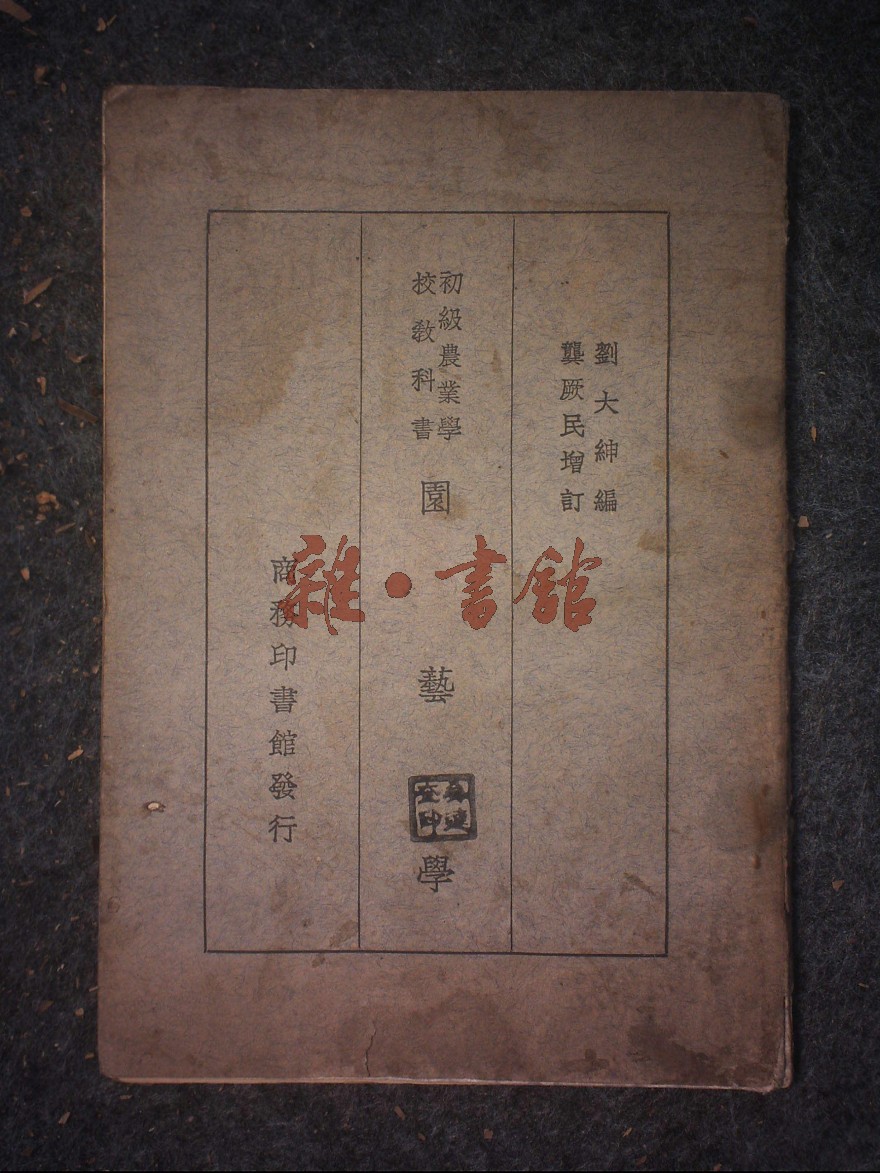 劉大紳編
龔厥民增訂
初級農業學
校教科書
園藝學
商務印書館發行
雜·書館